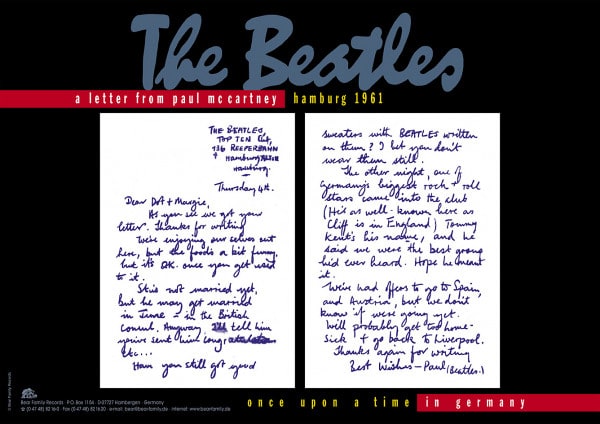 The Beatles
a letter from paul mccartney hamburg 1961
THE BEATLES,
TOP TEN Club,
136 REEPERBAHN
Hamburg Altona
Hamburg.
Thursday 4th.
Dear Dot + Margie,
As you see we got your
letter. Thanks for writing
We're enjoying our selves out
here, but the foods a bit funny,
but it's O.K. once you get used
to it.
Stu's not married yet,
but he may get married
in June - in the British
Consul. Anyway, I'll tell him
you've sent him
etc...
Have you still got your
sweaters with BEATLES written
on them? I bet you don't
wear them still.
The other night, one of
Germany's biggest rock + roll
stars came into the club
(He's as well-known here as
Cliff is in England) Tommy
Kent's his name, and he
said we were the best group
he'd ever heard. Hope he meant
it.
We've had offers to go to Spain,
and Austria, but we don't
know if we're going yet.
Will probably get too home-
sick + go back to Liverpool.
Thanks again for writing
Best Wishes - Paul (Beatles.)
once upon a time in germany
© Bear Family Records
Bear Family Records · P.O. Box 1154 · D-27727 Hambergen · Germany
☎ (0 47 48) 82 16-0 · Fax (0 47 48) 82 16 20 · e-mail: bear@bear-family.de · internet: www.bear-family.de